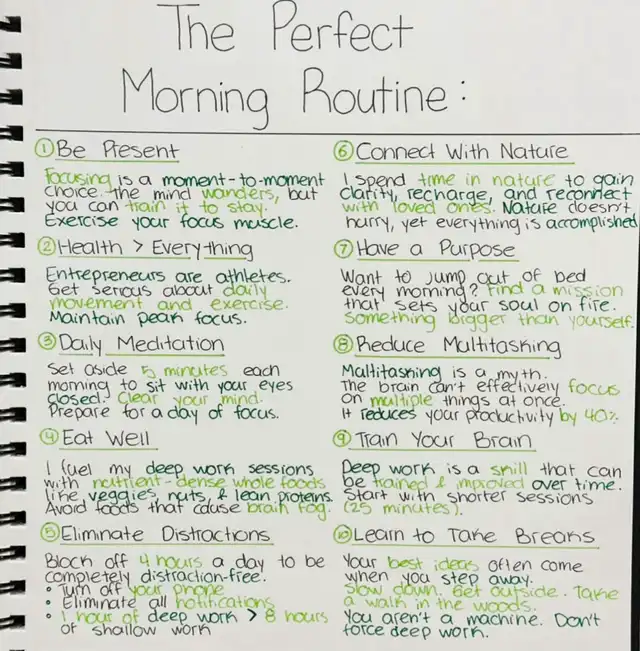 The Perfect
Morning Routine:
① Be Present
Focusing is a moment-to-moment
choice. The mind wanders, but
you can train it to stay.
Exercise your focus muscle.
② Health > Everything
Entrepreneurs are athletes.
Get serious about daily
movement and exercise.
Maintain peak focus.
③ Daily Meditation
Set aside 5 minutes each
morning to sit with your eyes
closed. Clear your mind.
Prepare for a day of focus.
④ Eat Well
I fuel my deep work sessions
with nutrient-dense whole foods
like veggies, nuts, & lean proteins.
Avoid foods that cause brain fog.
⑤ Eliminate Distractions
Block off 4 hours a day to be
completely distraction-free.
• Turn off your phone
• Eliminate all notifications
• 1 hour of deep work > 8 hours
of shallow work
⑥ Connect With Nature
I spend time in nature to gain
clarity, recharge, and reconnect
with loved ones. Nature doesn't
hurry, yet everything is accomplished
⑦ Have a Purpose
Want to jump out of bed
every morning? Find a mission
that sets your soul on fire.
Something bigger than yourself.
⑧ Reduce Multitasking
Multitasking is a myth.
The brain can't effectively focus
on multiple things at once.
It reduces your productivity by 40%
⑨ Train Your Brain
Deep work is a skill that can
be trained & improved over time.
Start with shorter sessions
(25 minutes).
⑩ Learn to Take Breaks
Your best ideas often come
when you step away.
Slow down. Get outside. Take
a walk in the woods.
You aren't a machine. Don't
force deep work.